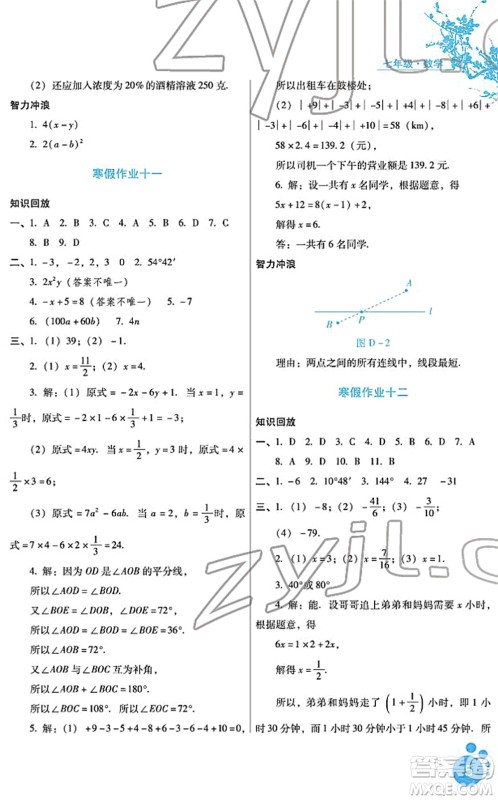 七年级·数学
(2) 还应加入浓度为 20% 的酒精溶液 250 克.
智力冲浪
1. 4(x-y)
2. 2(a-b)²
寒假作业十一
知识回放
一、1. A 2. B 3. C 4. A 5. B 6. D 7. C
8. B 9. D
二、1. -3, -2, 2, 3 0 2. 54°42′
3. 2x²y (答案不唯一)
4. -x+5=8 (答案不唯一) 5. -7
6. (100a+60b) 7. 4n
三、1. (1) 39; (2) -1.
2. (1) x=11/2; (2) x=4.
3. 解: (1) 原式=-2x-6y+1. 当 x=-2, y=
1/3 时, 原式=-2×(-2)-6×1/3+1=3;
(2) 原式=4xy. 当 x=1/2, y=3 时, 原式=4×
1/2×3=6;
(3) 原式=7a²-6ab. 当 a=-2, b=-1/3 时, 原
式=7×4-6×2×1/3=24.
4. 解: 因为 OD 是∠AOB 的平分线,
所以∠AOD=∠BOD.
又∠BOE=∠EOC, ∠DOE=72°,
所以∠AOB=72°.
又∠AOB 与∠BOC 互为补角,
所以∠AOB+∠BOC=180°.
所以∠BOC=108° 所以∠EOC=72°.
5. 解: (1) +9-3-5+4-8+6-3-6-4+10=0,
所以出租车在鼓楼处;
(2) |+9|+|-3|+|-5|+|+4|+
|-8|+|+6|+|-3|+|-6|+|-4|+|+10|=58 (km),
58×2.4=139.2 (元),
所以司机一个下午的营业额是 139.2 元.
6. 解: 设一共有 x 名同学, 根据题意, 得
5x+12=8(x-1)+2,
解得 x=6.
答: 一共有 6 名同学.
智力冲浪
A
B
P
l
图 D-2
理由: 两点之间的所有连线中, 线段最短.
寒假作业十二
知识回放
一、1. D 2. D 3. C 4. D 5. C 6. D 7. A
8. A 9. D 10. B 11. B 12. B
二、1. -6 2. 10°48′ 3. 祥 4. 27 -31
三、1. (1) -8; (2) -41/6; (3) -3/10;
(4) -79.
2. (1) x=3; (2) x=7/16; (3) x=2.
3. 40°或 80°
4. 解: 能. 设哥哥追上弟弟和妈妈需要 x 小时,
根据题意, 得
6x=1×2+2x,
解得 x=1/2.
所以, 弟弟和妈妈走了 (1+1/2) 小时, 即 1 小
时 30 分钟, 而 1 小时 30 分钟小于 1 小时 45 分钟. 所
zyjl.cn
zyjl.cn